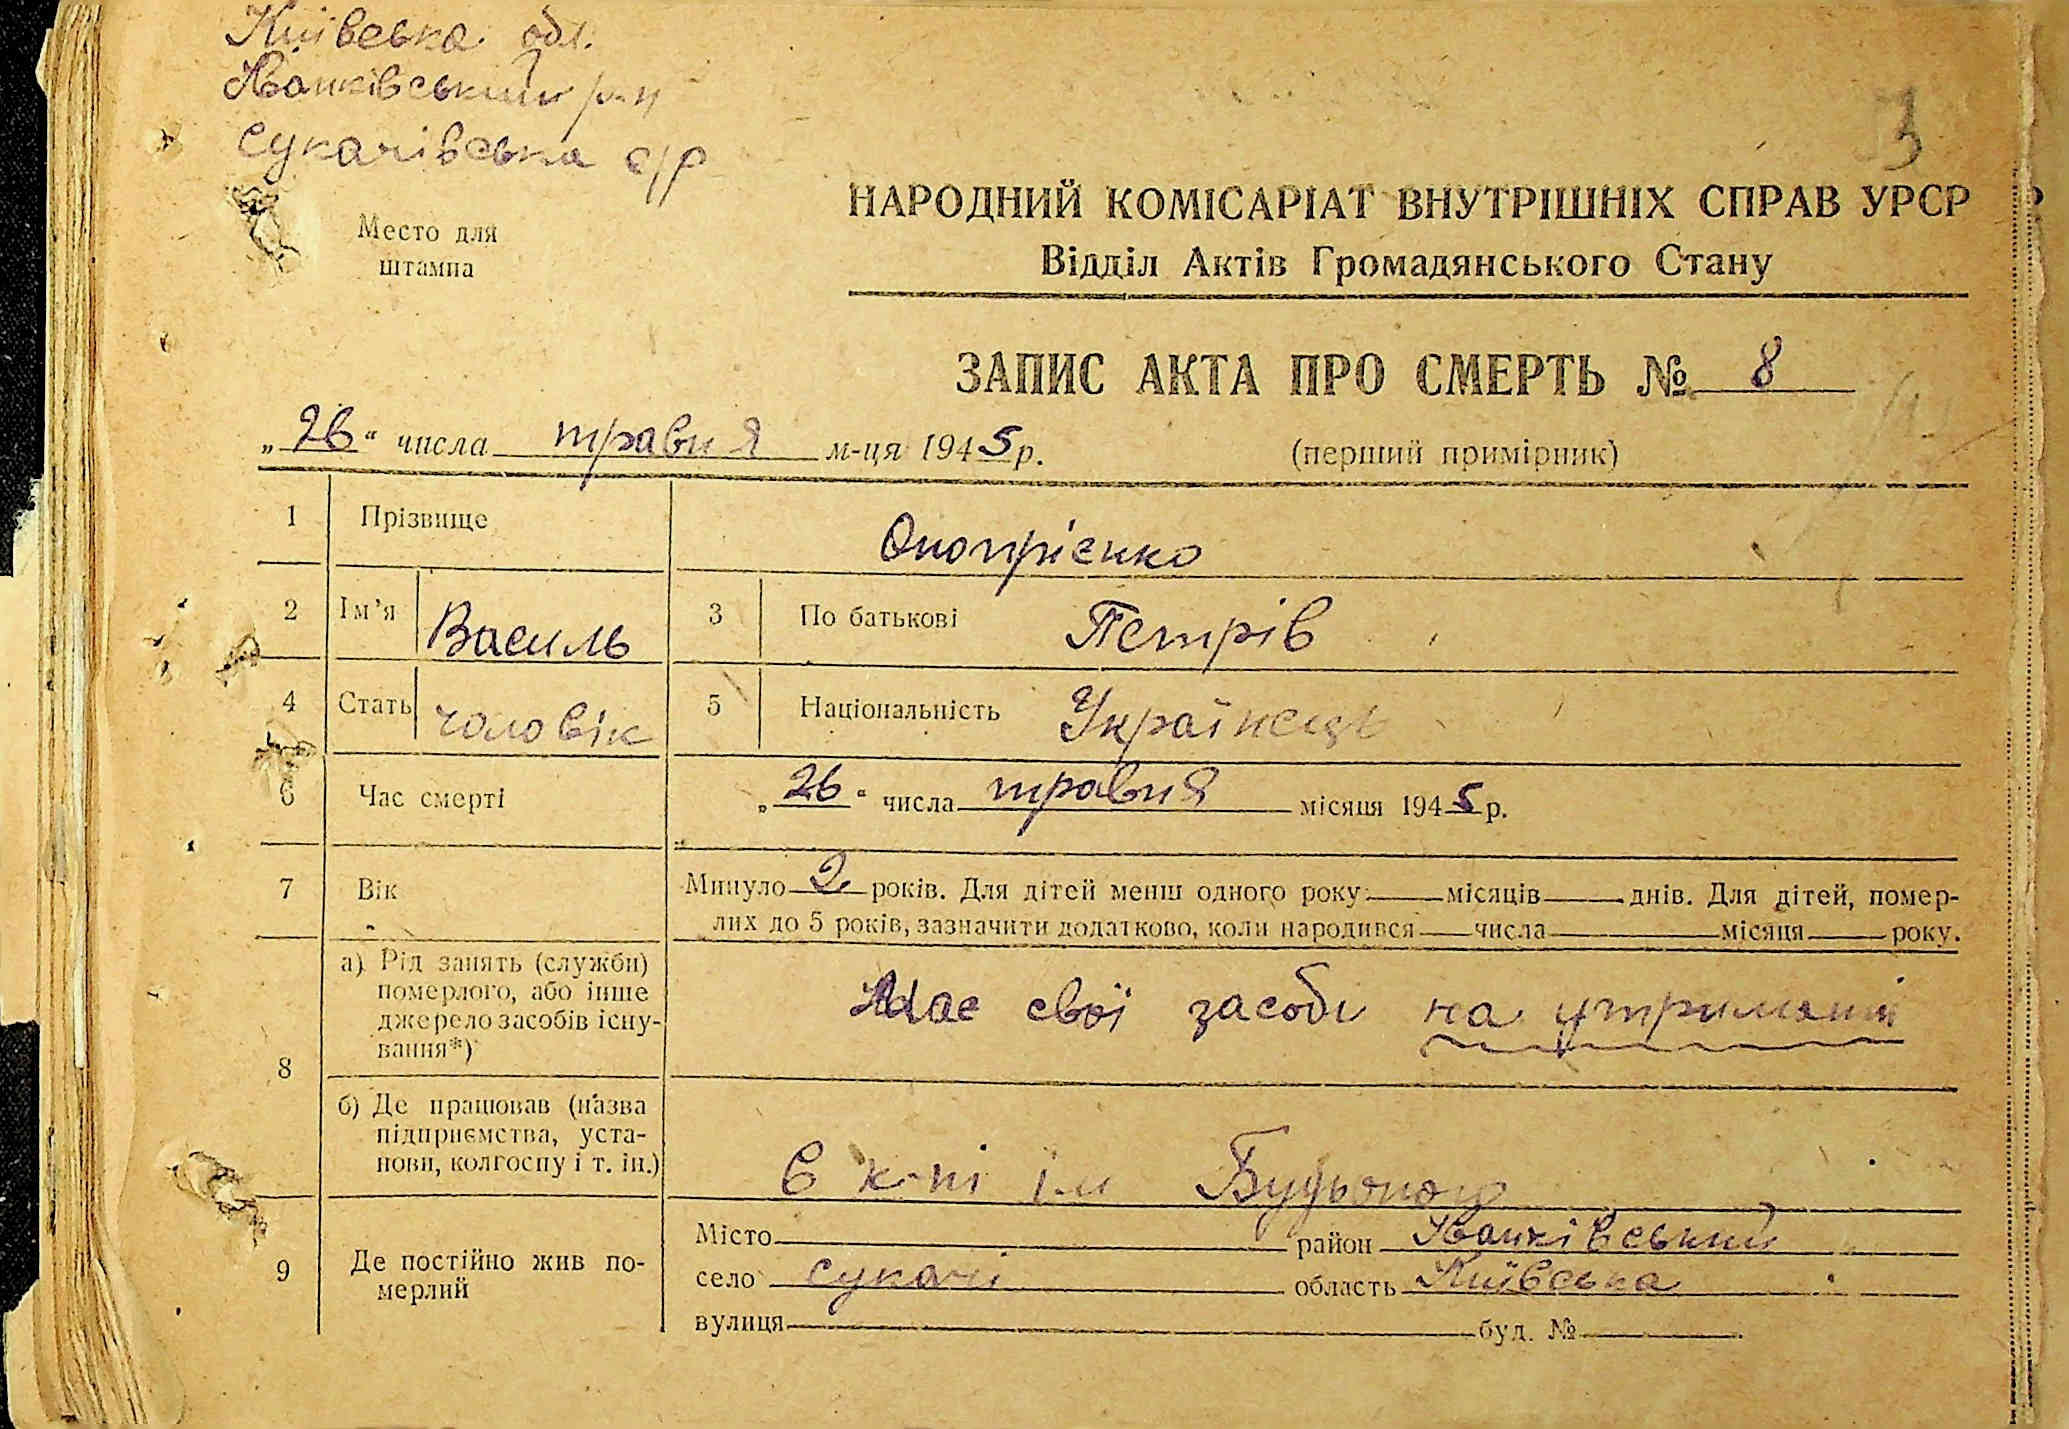 Київська обл.
Іванківський р-н
Сукачівська с/р
3
Место для
штампа
НАРОДНИЙ КОМІСАРІАТ ВНУТРІШНІХ СПРАВ УРСР
Відділ Актів Громадянського Стану
ЗАПИС АКТА ПРО СМЕРТЬ № 8
„26“ числа травня м-ця 1945 р.
(перший примірник)
1 Прізвище Онопрієнко
2 Ім’я Василь 3 По батькові Петрів
4 Стать чоловік 5 Національність Українець
6 Час смерті „26“ числа травня місяця 1945 р.
7 Вік Минуло 2 років. Для дітей менш одного року місяців днів. Для дітей, помер-
лих до 5 років, зазначити додатково, коли народився числа місяця року.
8 а) Рід занять (служби)
померлого, або інше
джерело засобів існу-
вання*)
Має свої засоби на утриманні
б) Де працював (назва
підприємства, уста-
нови, колгоспу і т. ін.)
в к-пі ім Будьоного
9 Де постійно жив по-
мерлий
Місто район Іванківський
село Сукачі область Київська
вулиця буд. №